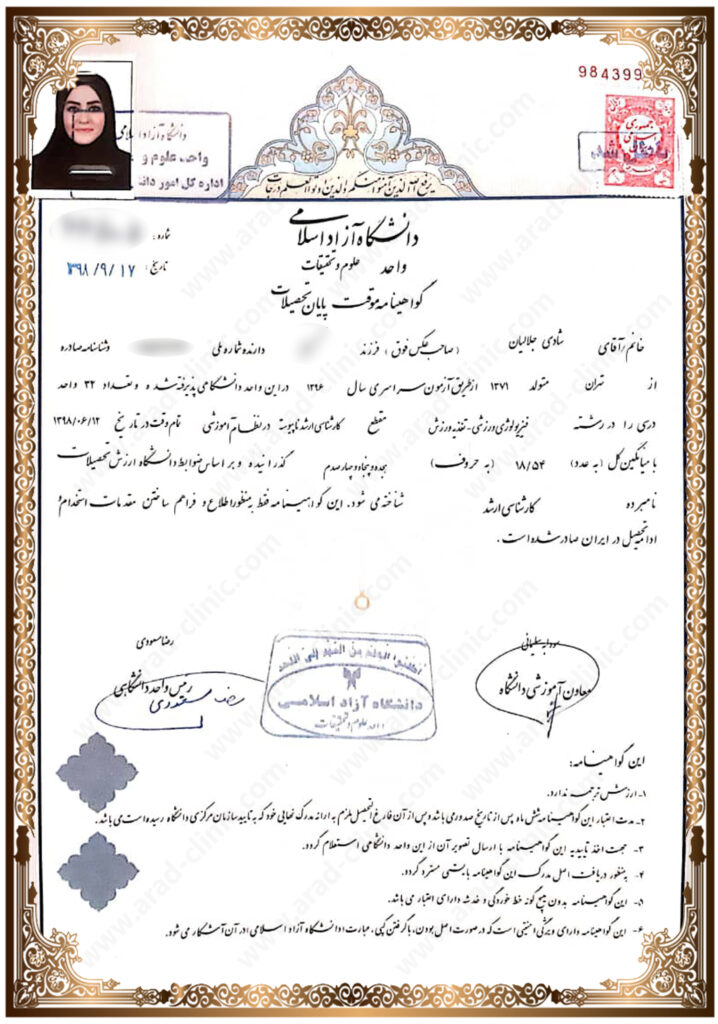 984399
جمهوری اسلامی
دانشگاه آزاد اسلامی
واحد علوم و
اداره کل امور دانش
یرفع الله الذین آمنوا منکم والذین اوتوا العلم درجات
دانشگاه آزاد اسلامی
واحد علوم و تحقیقات
گواهینامه موقت پایان تحصیلات
شماره :
تاریخ : ۱۳۹۸/۹/۱۷
خانم / آقای شادی جلالیان (صاحب عکس فوق) فرزند دارنده شماره ملی و شناسنامه صادره
از تهران متولد ۱۳۷۱ از طریق آزمون سراسری سال ۱۳۹۶ در این واحد دانشگاهی پذیرفته شده و تعداد ۳۲ واحد
درسی را در رشته فیزیولوژی ورزشی-تغذیه ورزش مقطع کارشناسی ارشد ناپیوسته در نظام آموزشی تمام وقت در تاریخ ۱۳۹۸/۰۶/۱۲
با میانگین کل (به عدد) ۱۸/۵۴ (به حروف) هجده و پنجاه و چهار صدم گذرانیده و بر اساس ضوابط دانشگاه ارزش تحصیلات
نامبرده کارشناسی ارشد شناخته می شود. این گواهینامه فقط بمنظور اطلاع و فراهم ساختن مقدمات استخدام و
ادامه تحصیل در ایران صادر شده است.
رضا مسعودی
رئیس واحد دانشگاهی
معاون آموزشی دانشگاه
اطلبوا العلم من المهد إلی اللحد
دانشگاه آزاد اسلامی
واحد علوم و تحقیقات
این گواهینامه:
۱- ارزش ترجمه ندارد.
۲- مدت اعتبار این گواهینامه شش ماه پس از تاریخ صدور می باشد و پس از آن فارغ التحصیل ملزم به ارائه مدرک نهایی خود که به تایید سازمان مرکزی دانشگاه رسیده است می باشد.
۳- جهت اخذ تاییدیه این گواهینامه با ارسال تصویر آن از این واحد دانشگاهی استعلام گردد.
۴- بمنظور دریافت اصل مدرک این گواهینامه بایستی مسترد گردد.
۵- این گواهینامه بدون هیچ گونه خط خوردگی و خدشه دارای اعتبار می باشد.
۶- این گواهینامه دارای ویژگی امنیتی است که در صورت اصل بودن، با گرفتن کپی، عبارت دانشگاه آزاد اسلامی در آن آشکار می شود.
www.arad-clinic.com